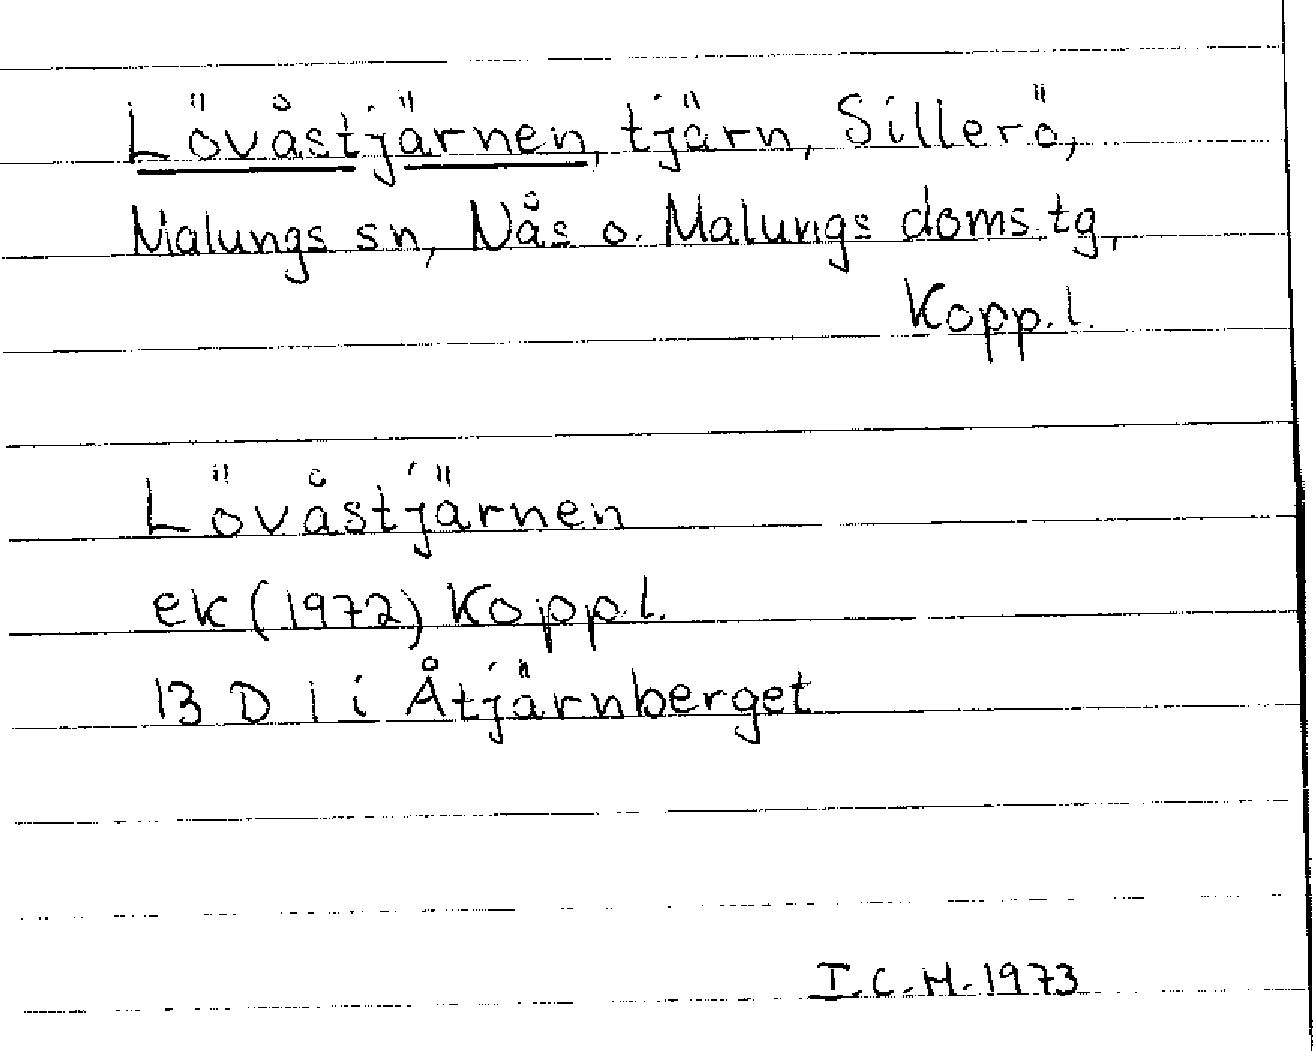 Lövåstjärnen, tjärn, Sillerö,
Malungs sn, Nås o. Malungs doms.tg,
Kopp.l.
Lövåstjärnen
ek (1972) Kopp.l.
13 D 1 i Åtjärnberget
I.C.H. 1973